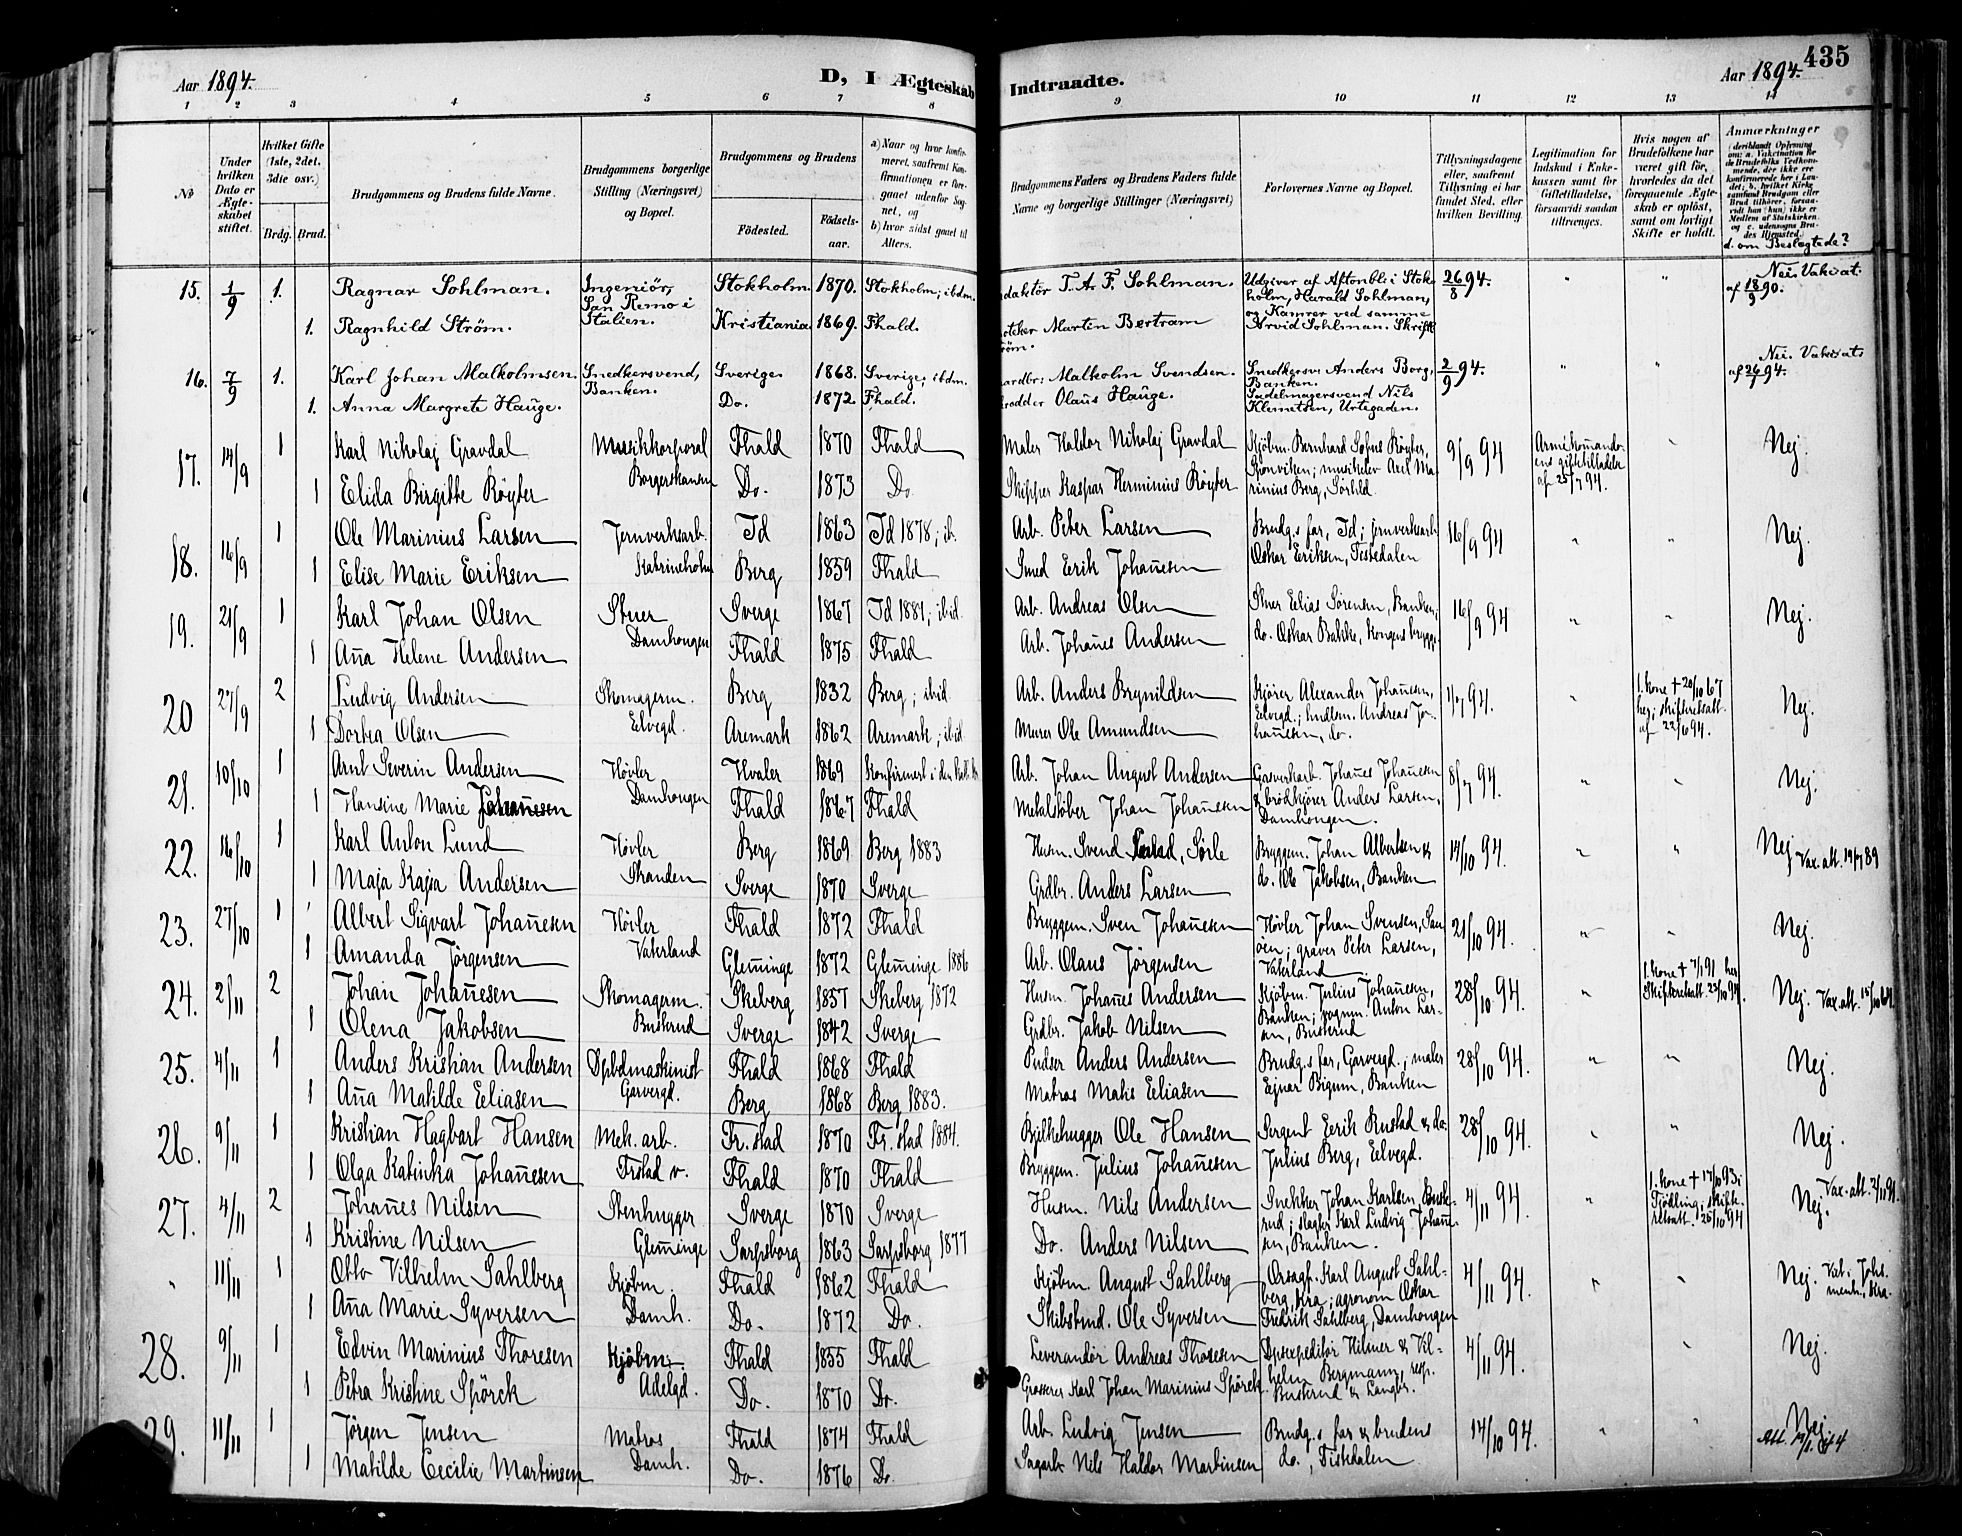 435
Aar 1894.
D, I Ægteskab Indtraadte.
Aar 1894.
1 2 3 4 5 6 7 8 9 10 11 12 13 14
No
Under hvilken Dato er Ægteskabet stiftet.
Hvilket Gifte (1ste, 2det, 3die osv.)
Brdg. Brud.
Brudgommens og Brudens fulde Navne.
Brudgommens borgerlige Stilling (Næringsvei) og Bopæl.
Brudgommens og Brudens
Fødested.
Fødselsaar.
a) Naar og hvor konfirmeret, saafremt Konfirmationen er foregaaet udenfor Sognet, og
b) hvor sidst gaaet til Alters.
Brudgommens Faders og Brudens Faders fulde Navne og borgerlige Stillinger (Næringsvei)
Forlovernes Navne og Bopæl.
Tillysningsdagene eller, saafremt Tillysning ei har fundet Sted, efter hvilken Bevilling.
Legitimation for Indskud i Enkekassen samt for Giftetilladelse, forsaavidt saadan tiltrænges.
Hvis nogen af Brudefolkene har været gift før, hvorledes da det foregaaende Ægteskab er opløst, samt om lovligt Skifte er holdt.
Anmærkninger
d. om Beslegtede?
15. 1/9 1. Ragnar Sohlman. Ingeniør, San Remo i Italien. Stokholm 1870. Stokholm; ibdm. daktør T. A. F. Sohlman. Udgiver af Aftonbl. i Stokholm, Harald Sohlman, og Kamrer ved samme Arvid Sohlman. Skrift 26/8 94. " " Nei. Vakc.at. af 18/9 90.
1. Ragnhild Strøm. Kristiania 1869. Fhald. oteker Martin Bertram røm.
16. 7/9 1. Karl Johan Malkolmsen. Snedkersvend, Banken. Sverige 1868. Sverige, ibdm. ardbr: Malkolm Svendsen. Snedkersv: Anders Borg, Banken. Sadelmagersvend Nils Klemetsen, Urtegaden. 2/9 94. " " Nei. Vakc.at.
1. Anna Margrete Hauge. Do. 1872. Fhald. Olaus Hauge.
17. 14/9 1 Karl Nikolaj Gravdal Musikkorporal Borgerskansen Fhald 1870 Fhald Maler Haldor Nikolaj Gravdal Kjøbm. Bernhard Sofus Röyter, musikelev Axel Marinius Berg, Sørhld. 9/9 94 af 25/7 94. " Nej.
1 Elida Birgitte Röyter Do. 1873 Do. Skipper Kaspar Herminius Röyter
18. 16/9 1 Ole Marinius Larsen Jernverksarb. Katrineholm Id 1863 Id 1878; ib. Arb. Peter Larsen Brudg.s far, Id; jernverksarb. Oskar Eriksen, Tistedalen 16/9 94 " " Nej.
1 Elise Marie Eriksen Berg 1859 Fhald Smed Erik Johañesen
19. 21/9 1 Karl Johan Olsen Stuer Damhougen Sverge 1867 Id 1881; ibid. Arb. Andreas Olsen Stuer Elias Sørensen, Banken; do. Oskar Bakke, Kongens brygge 16/9 94 " " Nej.
1 Aña Helene Andersen Fhald 1875 Fhald Arb. Johañes Andersen
20 27/9 2 Ludvig Andersen Skomagerm. Elvegd. Berg 1832 Berg; ibid Arb. Anders Brynildsen Kjører Alexander Johañesen, Elvegd.; Andreas Johañesen, do. 1/7 94. " 1. kone † 20/10 67 her; skifteretsatt. af 22/6 94. Nej.
1 Dortea Olsen Aremark 1862 Aremark; ibid Murer Ole Amundsen
21. 10/10 1 Arnt Severin Andersen Høvler Damhougen Hvaler 1869 Konfirmert i den Arb. Johan August Andersen Gasverksarb. Johañes Johañesen & brödkjører Anders Larsen, Damhougen. 8/7 94. " " Nej.
1 Hansine Marie Johañesen Fhald 1867 Fhald Metalstöber Johan Johañesen
22. 16/10 1 Karl Anton Lund Høvler Stranden Berg 1869 Berg 1883 Husm. Svend Bryggem. Johan Albertsen & do. Ole Jakobsen, Banken 14/10 94. " " Nej Vax.att. 19/7 89
1 Maja Kajsa Andersen Sverge 1870 Sverge Grdbr. Anders Larsen
23. 27/10 1 Albert Sigvart Johañesen Høvler Vaterland Fhald 1872 Fhald Bryggem. Sven Johañesen Høvler Johan Svensen, Sauøen; graver Peter Larsen, Vaterland 21/10 94. " " Nej.
1 Amanda Jörgensen Gleminge 1872 Gleminge 1886 Arb. Olaus Jörgensen
24. 2/11 2 Johan Johañesen Skomagerm. Buskerud Skeberg 1857 Skeberg 1872 Husm. Johañes Andersen Kjøbm. Julius Johañesen, Banken; vognm. Anton Larsen, Buskerud 28/10 94. " 1. kone † 7/1 91 her Skifteretsatt. 23/10 94. Nej. Vax.att. 15/10 64.
1 Olena Jakobsen Sverge 1842 Sverge Grdbr. Jakob Nilsen
25. 4/11 1 Anders Kristian Andersen Dpbdmaskinist Garvergd. Fhald 1868 Fhald Pudser Anders Andersen Brudg.s far, Garvergd.; maler Ejnar Bigum, Banken 28/10 94. " " Nej.
1 Aña Matilde Eliasen Berg 1868 Berg 1883. Matros Matis Eliasen
26. 9/11 1 Kristian Hagbart Hansen Mek. arb. Frstad v. Fr.stad 1870 Fr.stad 1884. Bjelkehugger Ole Hansen Sergent Erik Rustad & do. Julius Berg, Elvegd. 28/10 94. " " Nej.
1 Olga Katinka Johañesen Fhald 1870 Fhald Bryggem. Julius Johañesen
27. 4/11 2 Johañes Nilsen Stenhugger Gleminge Sverge 1870 Sverge Husm. Nils Andersen Snekker Johan Karlsen, Buskerud; slagter Karl Ludvig Johañesen, Banken. 4/11 94 " 1. kone † 17/10 93 i skifteretsatt. 25/10 94 Nej. Vax.att. 2/11 91.
1 Kristine Nilsen Sarpsborg 1863 Sarpsborg 1877 Do. Anders Nilsen
" 11/11 1 Otto Vilhelm Sahlberg Kjøbm. Damh. Fhald 1862 Fhald Kjøbm. August Sahlberg Karl August Sahlberg, Kra; agronom Oskar Fredrik Sahlberg, Damhougen 4/11 94 " " Nej. Vat. i Johs. menh., Kra.
1 Aña Marie Syversen Do. 1872 Do. Ole Syversen
28. 9/11 1 Edvin Marinius Thoresen Kjøbm. Adelgd. Fhald 1855 Fhald Leverandør Andreas Thoresen Dpsexpeditör Hilmer & Vilhelm Bergmann, resp. Buskerud & Langbr. 4/11 94. " Nej.
1 Petra Kristine Spörck Do. 1870 Do. Grosserer Karl Johan Marinius Spörck
29. 11/11 1 Jörgen Jensen Matros Damh. Fhald 1874 Fhald Arb. Ludvig Jensen Brudg.s far & brudens do., Tistedalen 14/10 94. " " Nej
1 Matilde Cecilie Martinsen Do. 1876 Do. Sagarb. Nils Haldor Martinsen